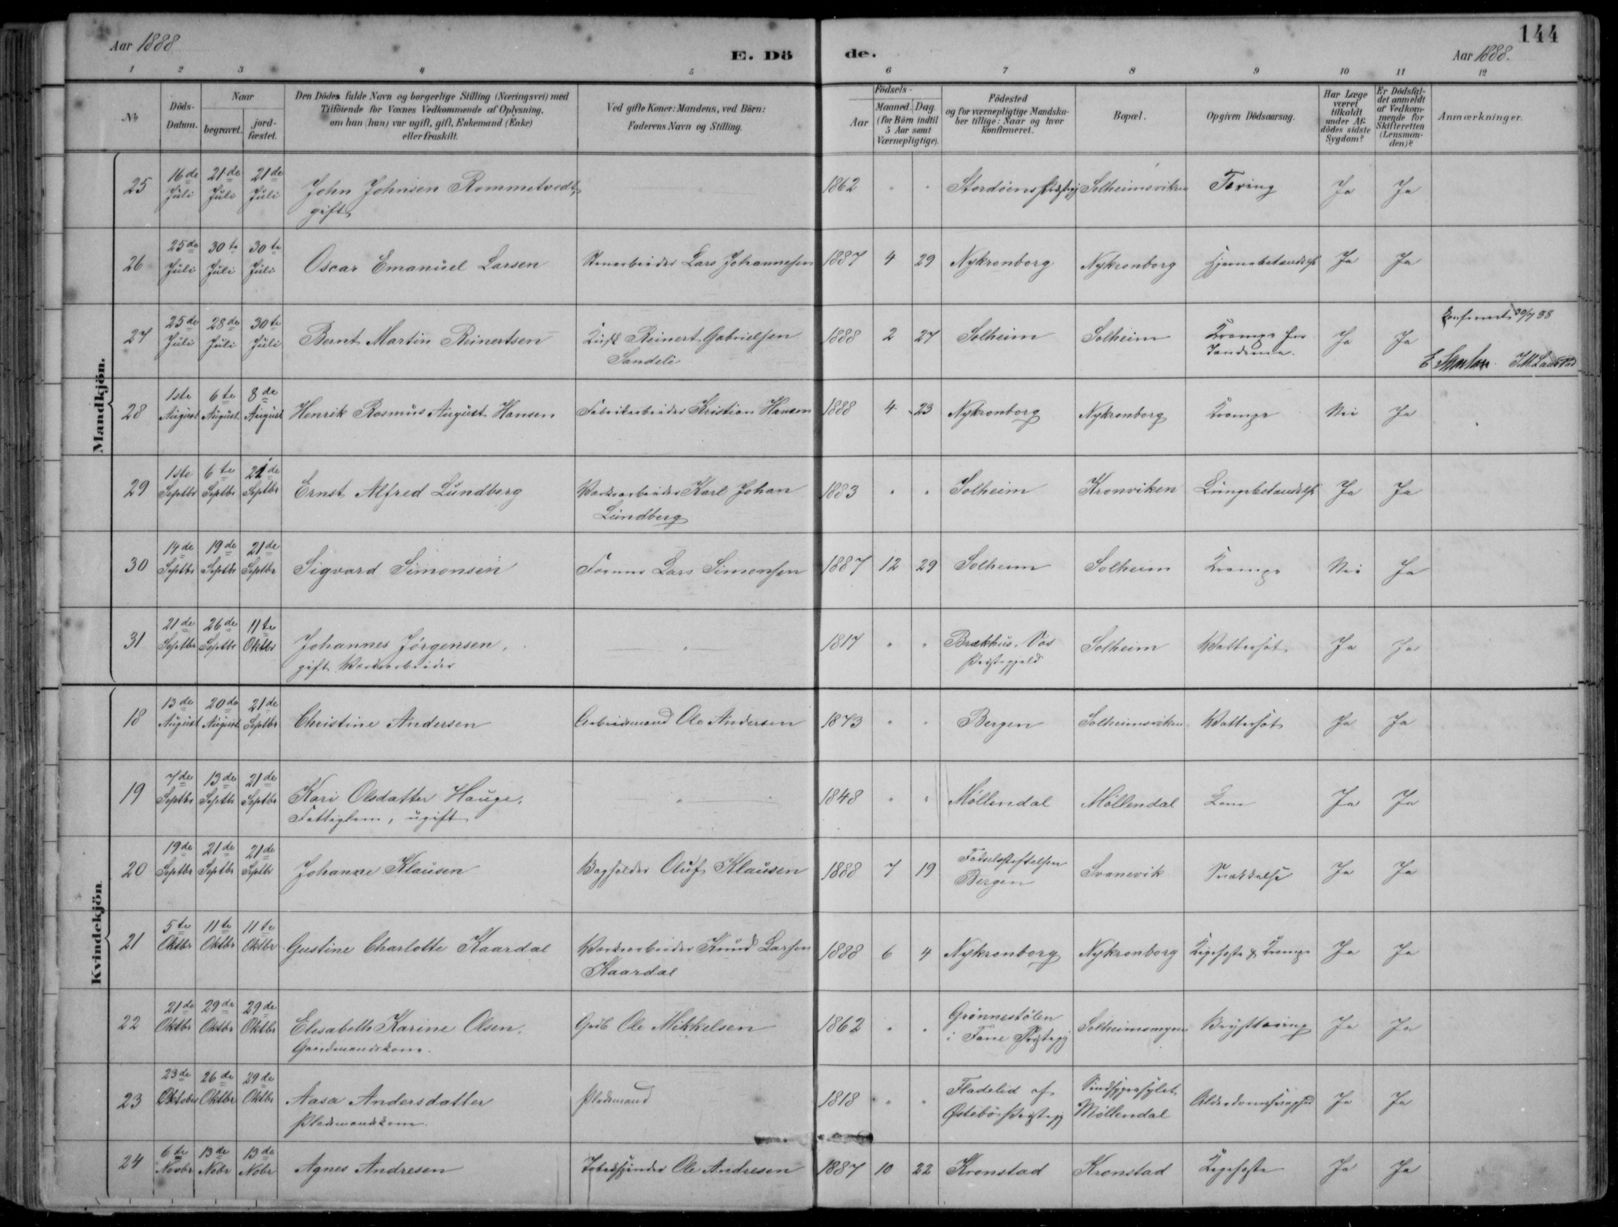 Aar 1888
E. Döde.
Aar 1888.
144
1 2 3 4 5 6 7 8 9 10 11 12
No
Döds-Datum.
Naar
begravet.
jord-fæstet.
Den Dödes fulde Navn og borgerlige Stilling (Næringsvei) med
Tilföiende for Voxnes Vedkommende af Oplysning,
om han (hun) var ugift, gift, Enkemand (Enke)
eller fraskilt.
Ved gifte Koner: Mandens, ved Börn:
Faderens Navn og Stilling.
Födsels-
Aar
Maaned Dag
(for Börn indtil
5 Aar samt
Værnepligtige)
Födested
og for værnepligtige Mandska-
ber tillige: Naar og hvor
konfirmeret.
Bopæl.
Opgiven Dödsaarsag.
Har Læge
været
tilkaldt
under Af-
dödes sidste
Sygdom?
Er Dödsfal-
det anmeldt
af Vedkom-
mende for
Skifteretten
(Lensman-
den)?
Anmærkninger.
Mandkjön.
25 16de Juli 21de Juli 21de Juli John Johnsen Rommetvedt, gift 1862 " " Stordöens Solheimsviken Tæring Ja Ja
26 25de Juli 30te Juli 30te Juli Oscar Emanuel Larsen Stenarbeider Lars Johannesen 1887 4 29 Nykronborg Nykronborg Hjernebetændelse Ja Ja
27 25de Juli 28de Juli 30te Juli Bernt Martin Reinertsen Reinert Gabrielsen Sandeli 1888 2 27 Solheim Solheim Krampe Ja Ja
28 1ste August 6te August 8de August Henrik Rasmus August Hansen Fabrikarbeider Kristian Hansen 1888 4 23 Nykronborg Nykronborg Krampe Nei Ja
29 1ste Septbr 6te Septbr 21de Septbr Ernst Alfred Lundberg Værksarbeider Karl Johan Lundberg 1883 " " Solheim Kronviken Lungebetændelse Ja Ja
30 14de Septbr 19de Septbr 21de Septbr Sigvard Simonsen Lars Simonsen 1887 12 29 Solheim Solheim Krampe Nei Ja
31 21de Septbr 26de Septbr 11te Oktbr Johannes Jörgensen, gift Værksarbeider " 1817 " " Brækhus, Vos Præstegjeld Solheim Vattersot Ja Ja
Kvindekjön.
18 13de August 20de August 21de Septbr Christine Andersen Arbeidsmand Ole Andersen 1873 " " Bergen Solheimsviken Vattersot Ja Ja
19 7de Septbr 13de Septbr 21de Septbr Kari Olsdatter Hauge, Fattiglem, ugift " 1848 " " Möllendal Möllendal Ja Ja
20 19de Septbr 21de Septbr 21de Septbr Johanne Klausen Bogholder Oluf Klausen 1888 7 19 Födselsstiftelsen Bergen Svanevik Ja Ja
21 5te Oktbr 11te Oktbr 11te Oktbr Gustine Charlotte Kaardal Værksarbeider Knud Larsen Kaardal 1888 6 4 Nykronborg Nykronborg Kighoste & Krampe Ja Ja
22 21de Oktbr 29de Oktbr 29de Oktbr Elisabeth Karine Olsen, Gaardmandskone. Grdb Ole Mikkelsen 1862 " " Grönnestölen i Fane Solheimsmyren Brysttæring Ja Ja
23 23de Oktober 26de Oktbr 29de Oktbr Aasa Andersdatter Pladsmandskone. Pladsmand 1818 " " Fladelid af Sindssygeasylet Möllendal Alderdomssvaghed Ja Ja
24 6te Novbr 13de Nobr 13de Nobr Agnes Andresen Ole Andresen 1887 10 22 Kronstad Kronstad Kighoste Ja Ja